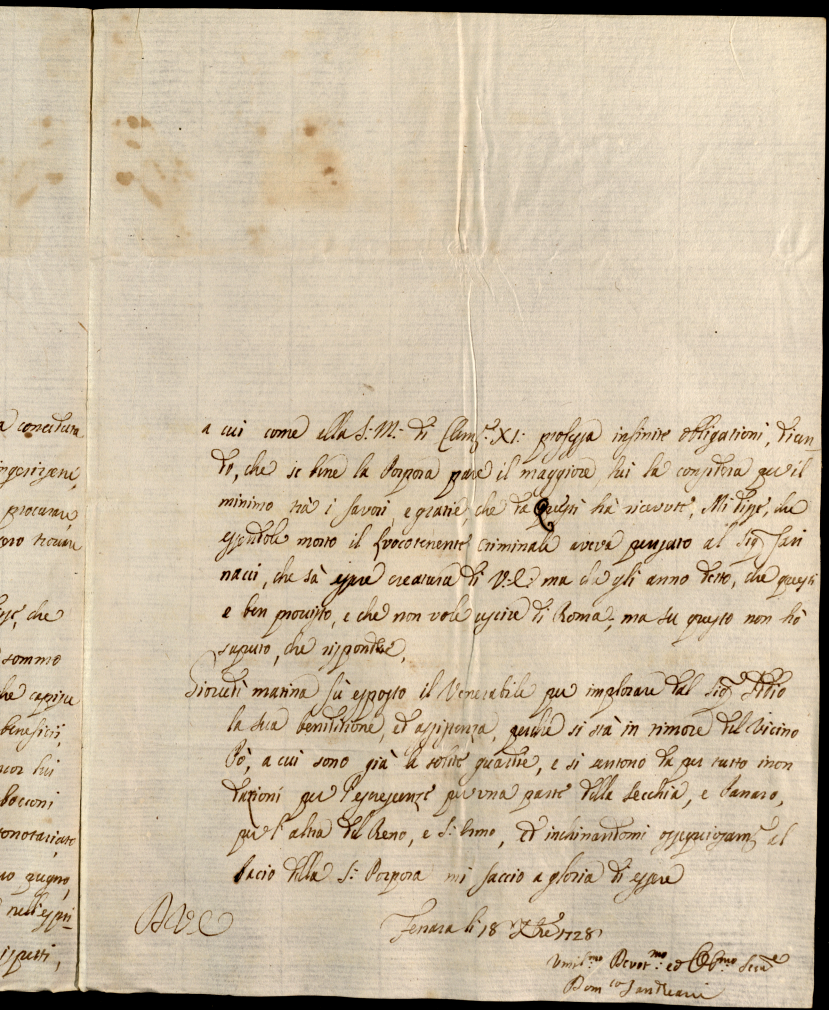 a concedura
procurare
che
sommo
che capire
benefitii,
bocconi
giugno,
nell'espri-
rispetti,
a cui come alla S: M: di Clem.e XI: professa infinite obbligationi, dicen
do, che se bene la Porpora pare il maggiore, lui la considera per il
minimo trà i favori, e gratie, che da questi hà ricevute, Mi disse, che
essendole morto il Luocotenente Criminale aveva pensato al Sig.r Fari
nacci, che sà essere creatura di V. E. ma che gli anno detto, che questi
e ben provisto, e che non vole uscire di Roma; ma su questo non hò
saputo, che rispondere,
Giovedi matina fù esposto il Venerabile per implorare dal Sig.r Iddio
la sua benditione, ed assistenza, perche si stà in timore del vicino
Pò, a cui sono già le solite guardie, e si sentono da per tutto inon
dazioni per l'escrescenze per una parte della Secchia, e Panaro,
per l'altra del Reno, e S: Ermo, Ed inchinandomi ossequiosam.e al
bacio della S: Porpora mi faccio a gloria di essere
D V E
Ferrara li 18 Xbre 1728
Umil.mo Devot.mo ed Obb.mo Serv.e
Dom.co